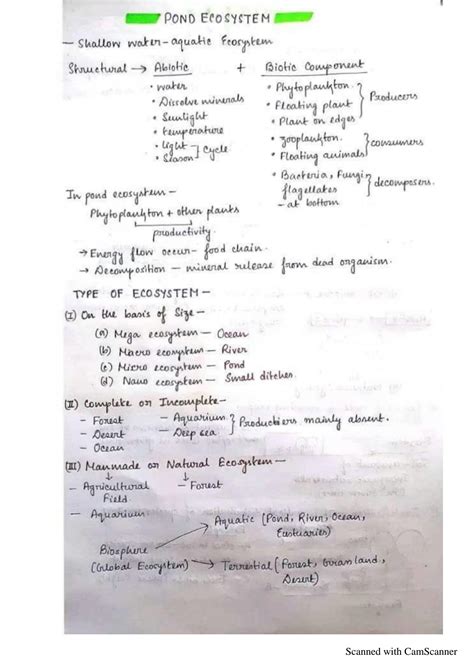 POND ECOSYSTEM
- Shallow water-aquatic Ecosystem
Structural → Abiotic + Biotic Component
• water
• Dissolve minerals
• Sunlight
• temperature
• light
• Season } cycle
• Phytoplankton
• Floating plant
• Plant on edges } Producers
• zooplankton
• Floating animals } consumers
• Bacteria, Fungi
flagellates } decomposers.
- at bottom
In pond ecosystem -
Phytoplankton + other plants
↓
productivity.
→ Energy flow occur - food chain.
→ Decomposition - mineral release from dead organism.
TYPE OF ECOSYSTEM -
(I) On the basis of Size -
(a) Mega ecosystem - Ocean
(b) Macro ecosystem - River
(c) Micro ecosystem - Pond
(d) Nano ecosystem - Small ditches.
(II) Complete or Incomplete -
- Forest
- Desert
- Ocean
- Aquarium
- Deep sea } Producers mainly absent.
(III) Manmade or Natural Ecosystem -
- Agricultural
Field
- Forest
- Aquarium
Biosphere
(Global Ecosystem)
Aquatic (Pond, River, Ocean,
Eustuaries)
Terrestial (Forest, Grassland,
Desert)
Scanned with CamScanner